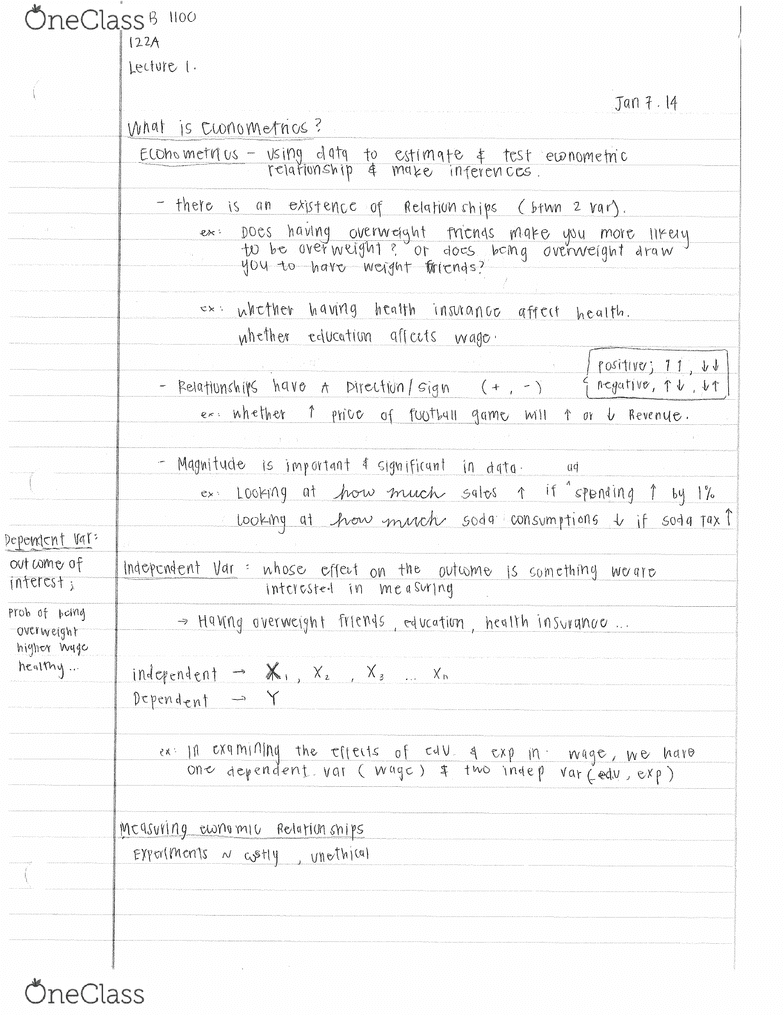 OneClass B 1100
122A
Lecture 1.
Jan 7. 14
What is Econometrics?
Econometrics - using data to estimate & test econometric
relationship & make inferences.
- there is an existence of Relationships (btwn 2 var).
ex: Does having overweight friends make you more likely
to be overweight? or does being overweight draw
you to have weight friends?
ex: whether having health insurance affect health.
whether education affects wage.
positive; ↑↑, ↓↓
negative, ↑↓, ↓↑
- Relationships have A Direction/sign (+, -)
ex: whether ↑ price of football game will ↑ or ↓ Revenue.
- Magnitude is important & significant in data.
ex: Looking at how much sales ↑ if ^ad spending ↑ by 1%
Looking at how much soda consumptions ↓ if soda tax ↑
Dependent Var:
outcome of
interest;
prob of being
overweight
higher wage
healthy...
Independent Var: whose effect on the outcome is something we are
interested in measuring
→ Having overweight friends, education, health insurance...
independent → X₁, X₂, X₃ ... Xₙ
Dependent → Y
ex: In examining the effects of edu. & exp in. wage, we have
one dependent var (wage) & two indep var (edu, exp)
Measuring economic Relationships
Experiments ~ costly, unethical
OneClass